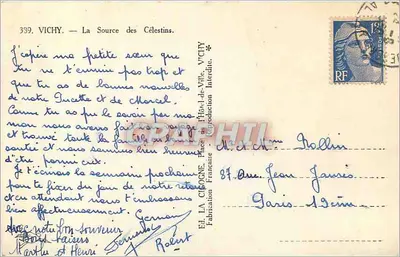 339. VICHY. — La Source des Célestins.
J'espère ma petite sœur que
tu ne t'ennuie pas trop et
que tu as de bonnes nouvelles
de notre et de Marcel.
Comme tu as pu le savoir par ma
man nous avons fait bon voyage
et trouvé toute la famille en bonne
santé et nous sommes bien heureux
d'être parmi eux.
Je t'écrirais la semaine prochaine
pour te fixer du jour de notre retour
et en attendant nous t'embrassons
bien affectueusement. Germain
avec notre bon souvenir
Bons baisers Fernande
Marthe et Henri Robert
Ed. LA CIGOGNE, Place de l'Hôtel-de-Ville, VICHY
Fabrication Française - Reproduction Interdite.
CARTHITI
RF
Rollin
87 Rue Jean Jaurès
Paris 19ème